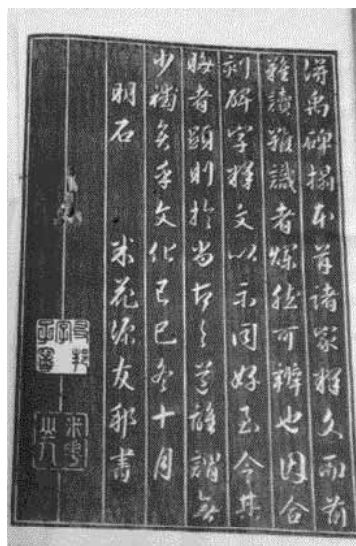 得禹碑搨本并諸家釋文而前
難讀難識者煥然可辨也因合
刻碑字釋文以示同好至今其
晦者顕則於尚古之道雖謂無
少補矣乎文化己巳冬十月
明石　米花源友邦書